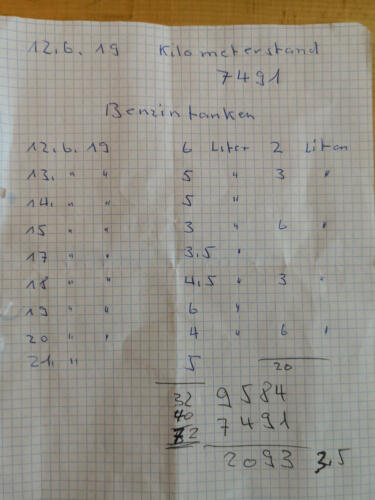 12.6.19 Kilometerstand
7491
Benzin tanken
12.6.19 6 Liter 2 Liter
13. " " 5 " 3 "
14. " " 5 "
15 " " 3 " 6 "
17 " " 3,5 "
18 " " 4,5 " 3 "
19 " " 6 "
20 " " 4 " 6 "
21. " 5 20
32 9584
40 7491
72 2093 3,5